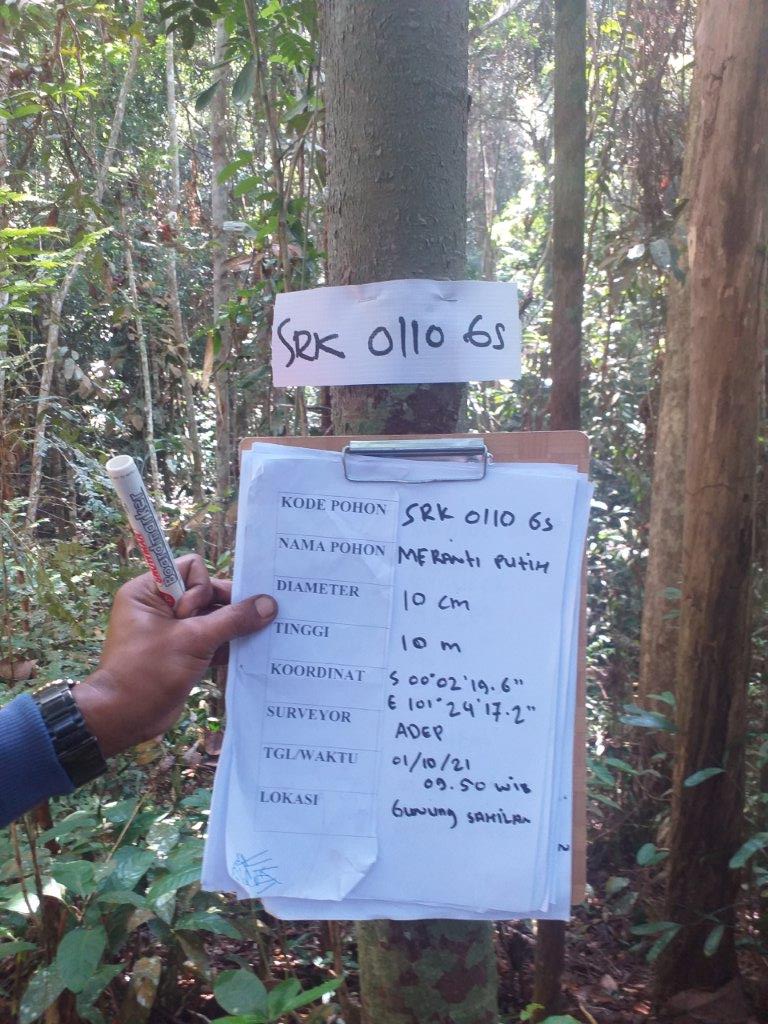 SRK 0110 6s
KODE POHON SRK 0110 6s
NAMA POHON MERANTI PUTIH
DIAMETER 10 cm
TINGGI 10 m
KOORDINAT S 00°02'19.6"
E 101°24'17.2"
SURVEYOR ADEP
TGL/WAKTU 01/10/21
09.50 WIB
LOKASI GUNUNG SAHILAN
Boardmarker